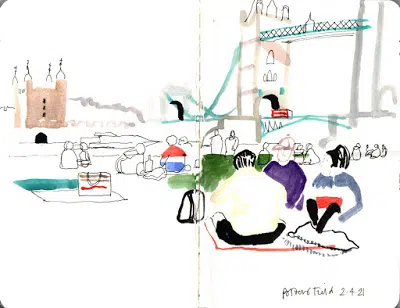 Potters Field 2.4.21